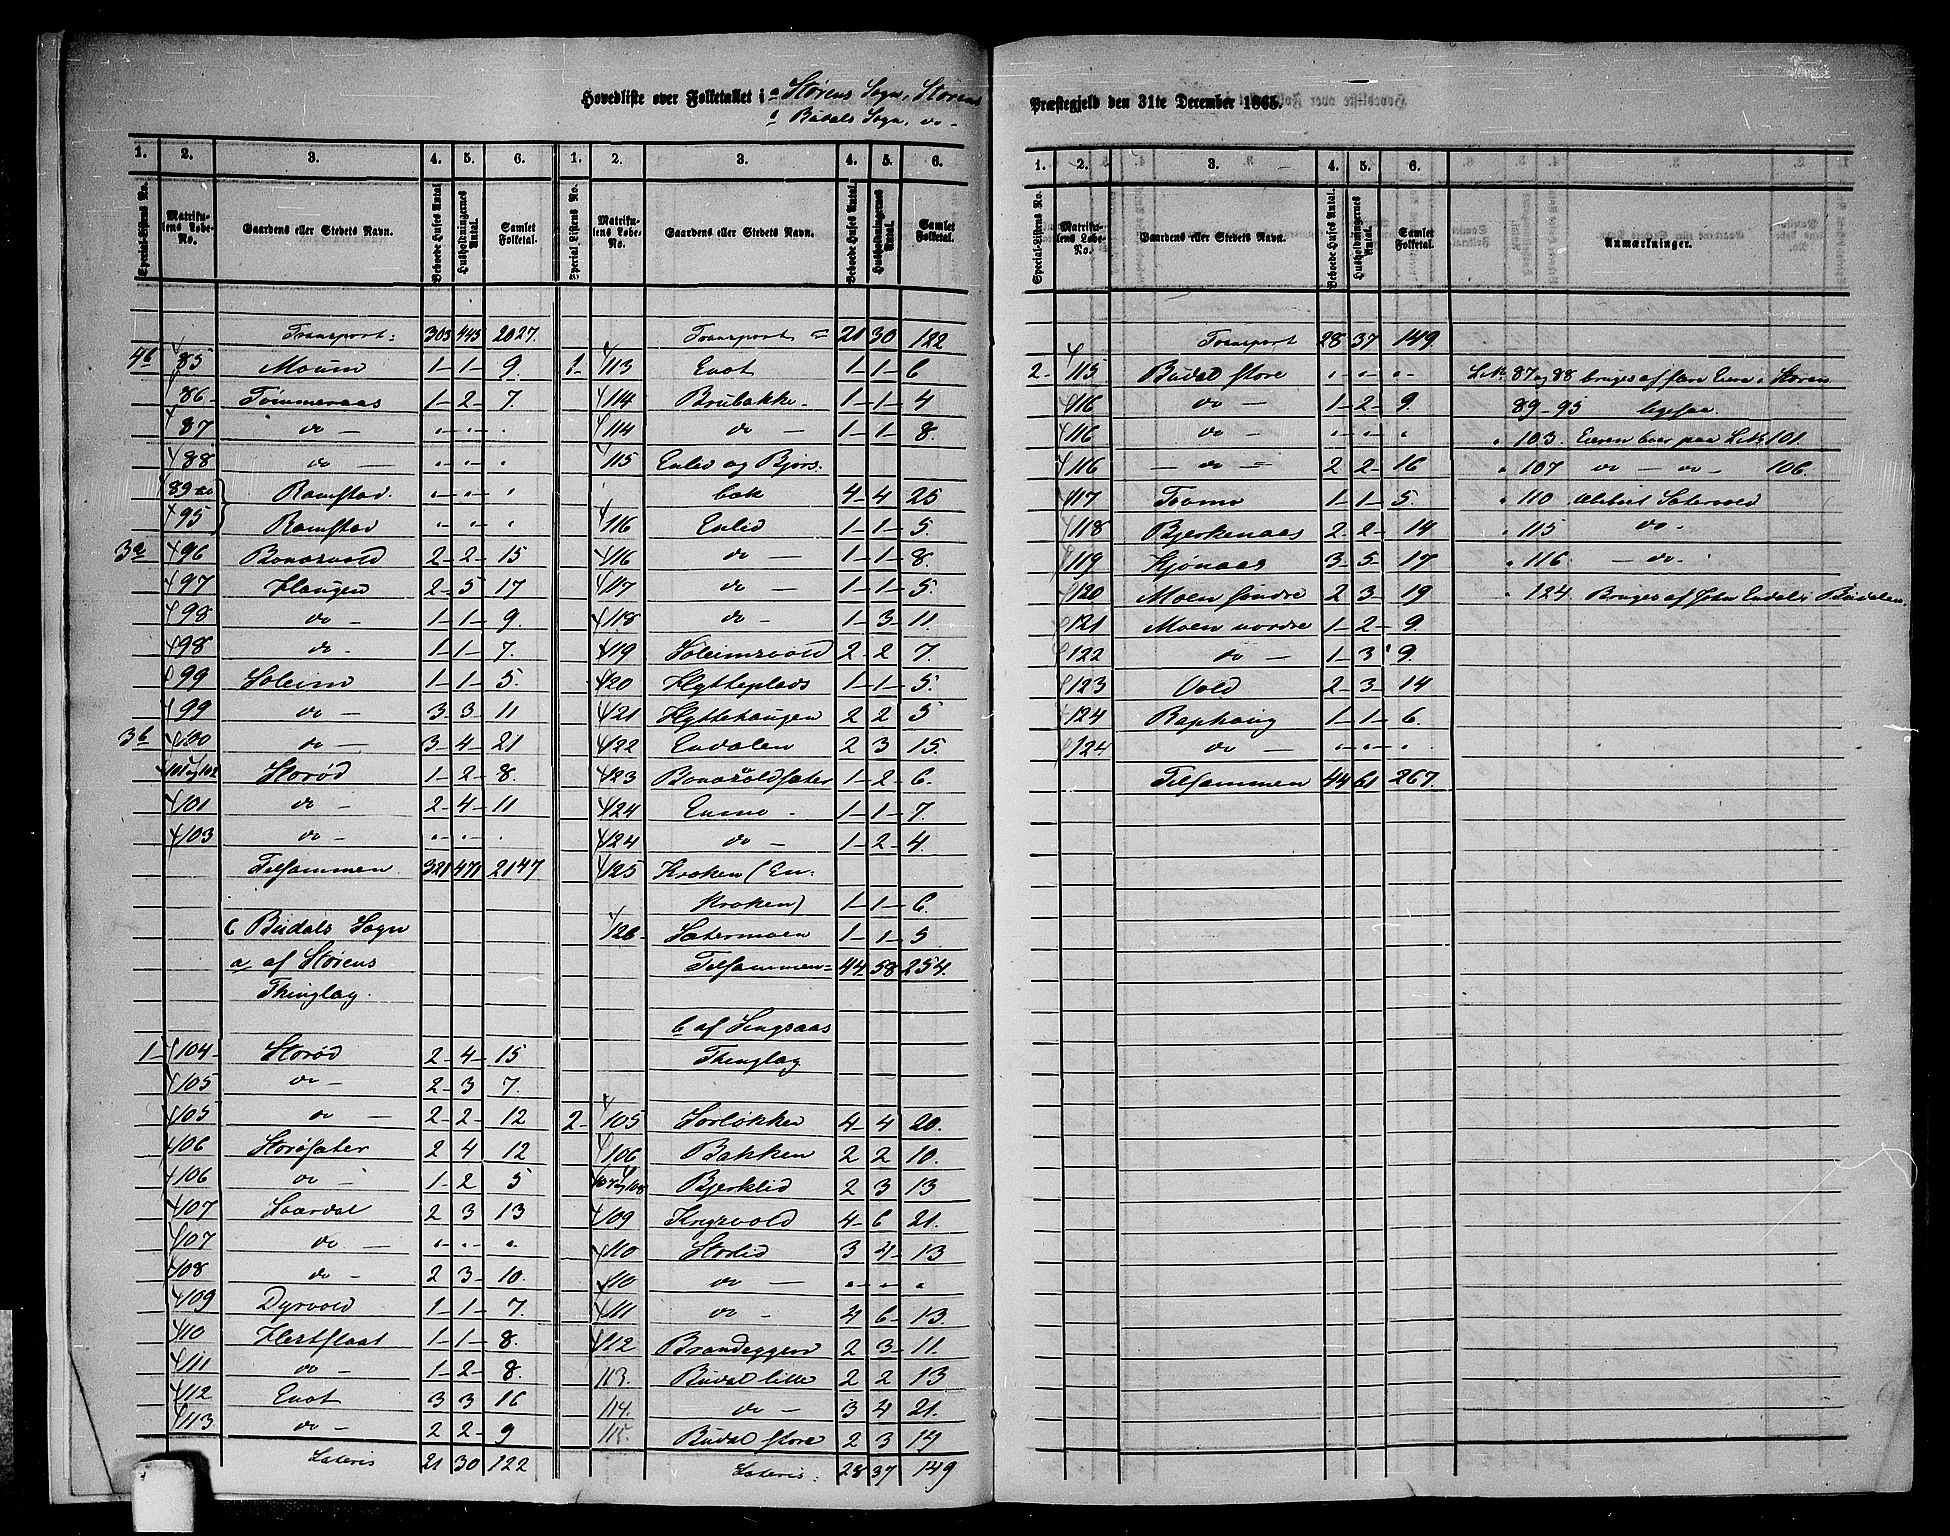 Hovedliste over Folketallet i a Størens Sogn, Størens
Præstegjeld den 31te December 1865.
" Budals Sogn, do -
1. 2. 3. 4. 5. 6.
Special-Listens No. Matrikulens Løbe-No. Gaardens eller Stedets Navn. Beboede Huses Antal. Husholdningernes Antal. Samlet Folketal.
Transport: 303 445 2027.
4b 85 Moum 1 1 9.
86 Tømmeraas 1 2 7.
87 do " " "
88 do " " "
89 Ramstad " " "
95 Ramstad " " "
3a 96 Bonesvold 2 2 15
97 Haugen 2 5 17
98 do 1 1 9.
98 do 1 1 7.
99 Soleim 1 1 5.
99 do 3 3 11
3b 100 do 3 4 21
101 og 102 Storød 1 2 8.
101 do 2 4 11
103 do " " "
Tilsammen 321 471 2147
Budals Sogn
a af Størens
Thinglag.
1 104 Storød 2 4 15
105 do 2 3 7.
105 do 2 2 12
106 Storøsæter 2 4 12
106 do 1 2 5
107 2 3 13
107 do " " "
108 do 2 3 10.
109 Dyrvold 1 1 7.
110 1 1 8.
111 do 1 2 8.
112 Enot 3 3 16
113 do 2 2 9
Lateris 21 30 122
1. 2. 3. 4. 5. 6.
Special Listens No. Matrikulens Løbe-No. Gaardens eller Stedets Navn. Beboede Huses Antal. Husholdningernes Antal. Samlet Folketal.
Transport = 21 30 122
1 113 Enot 1 1 6
114 Brubakke 1 1 4
114 do 1 1 8.
115 Enlid og Bjørs-
bæk 4 4 25
116 Enlid 1 1 5.
116 do 1 1 8.
117 do 1 1 5.
118 do 1 3 11.
119 Soleimsvold 2 2 7.
120 Hytteplads 1 1 5.
121 Hyttehaugen 2 2 5
122 Endalen 2 3 15.
123 Bonesvoldsæter 1 2 6.
124 Enmo 1 1 7.
124 do 1 2 4
125 Kroken (En-
kroken) 1 1 6.
126 Sætermoen 1 1 5
Tilsammen 44 58 254.
b af Singsaas
Thinglag
2 105 Sorløkken 4 4 20.
106 Bakken 2 2 10.
107 og 108 Bjerklid 2 3 13
109 Singsvold 4 6 21.
110 Storlid 3 4 13
110 do " " "
111 do 4 6 13.
112 Brandeggen 2 3 11.
113. Budal lille 2 2 13
114. do 3 4 21.
115. Budal store 2 3 14
Lateris: 28 37 149
1. 2. 3. 4. 5. 6.
Special-Listens No. Matrikulens Løbe-No. Gaardens eller Stedets Navn. Beboede Huses Antal. Husholdningernes Antal. Samlet Folketal. Anmærkninger.
Transport 28 37 149.
2 115 Budal store " " " 87 og 88 bruges af Støren
116 do 1 2 9. 89-95 ligesaa.
116 do " " " " 103. Eieren boer paa 101.
116 do 2 2 16 " 107 do do 106.
117 Tovmo 1 1 5. " 110 Ubeboet Sætervold
118 Bjerkenaas 2 2 14 " 115 do
119 Kjønaas 3 5 17 " 116. do
120 Moen søndre 2 3 19 " 124. Bruges af John Endal i Budalen.
121 Moen nordre 1 2 9.
122 do 1 3 9.
123 Vold 2 3 14
124 Raphaug 1 1 6.
124 do " " "
Tilsammen 44 61 267.